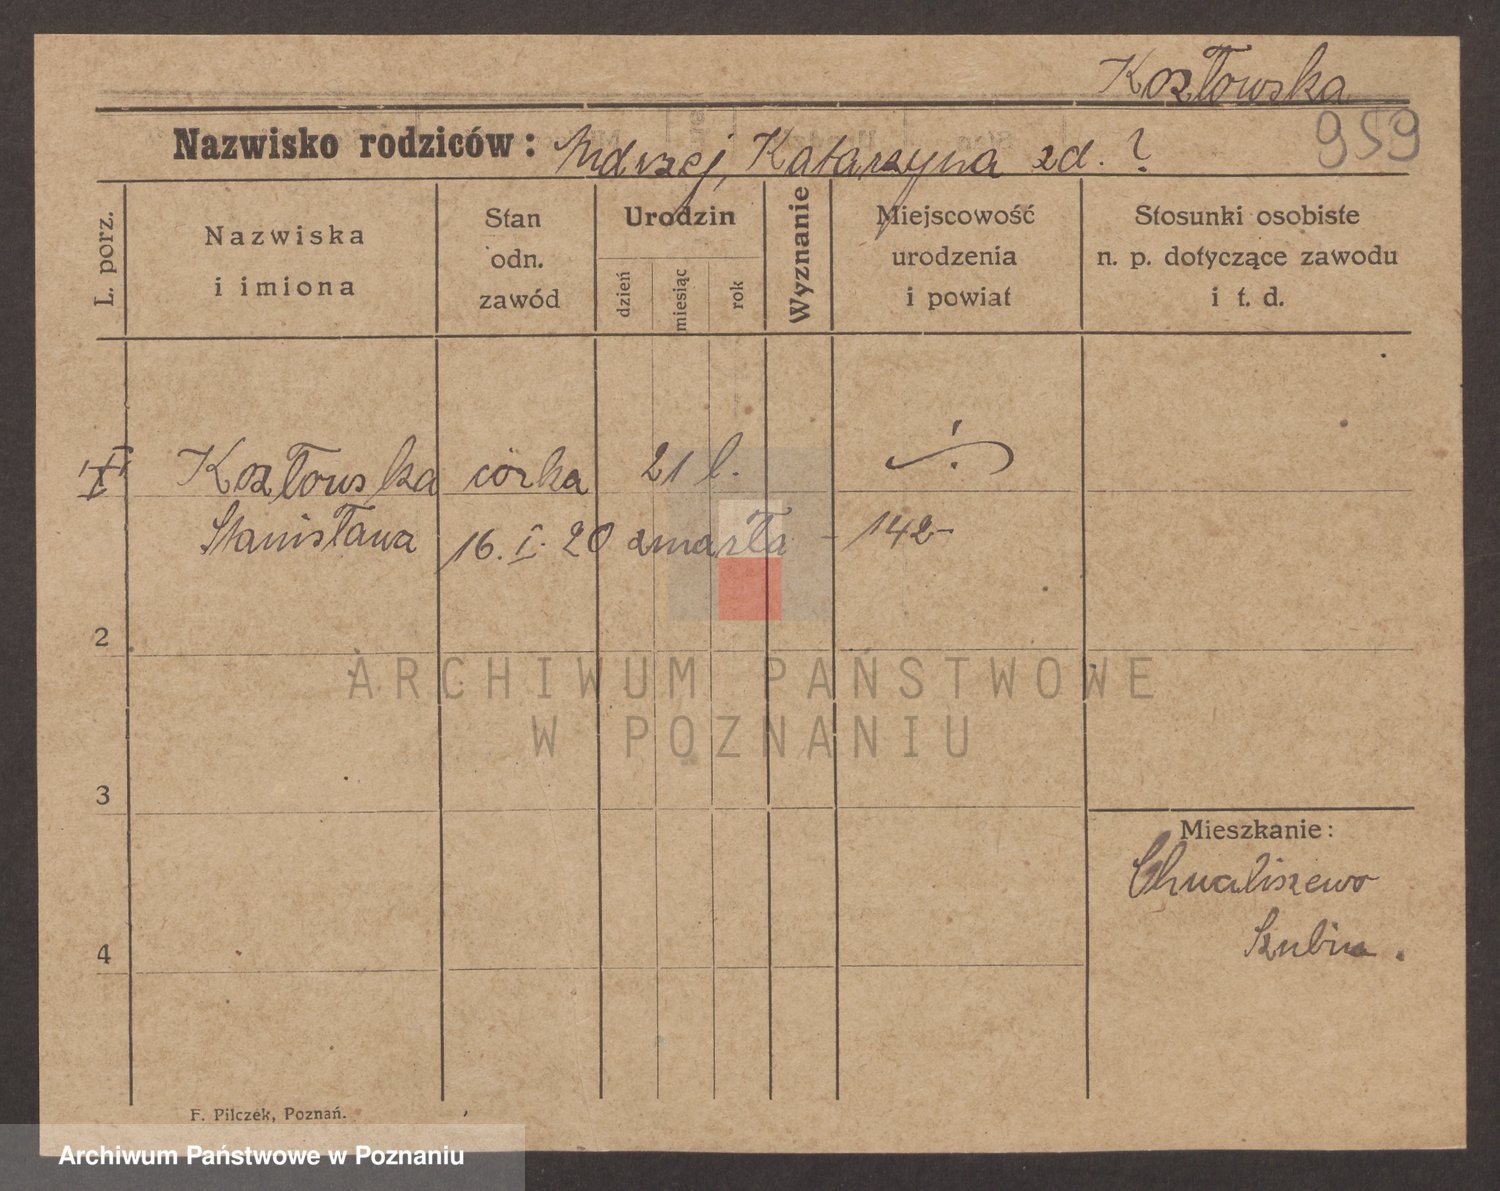 Kozłowska
959
Nazwisko rodziców: Andrzej, Katarzyna zd. ?
L. porz.
Nazwiska
i imiona
Stan
odn.
zawód
Urodzin
dzień
miesiąc
rok
Wyznanie
Miejscowość
urodzenia
i powiat
Stosunki osobiste
n. p. dotyczące zawodu
i t. d.
Kozłowska córka 21 l.
Stanisława 16. I. 20 zmarła - 142-
2
3
4
ARCHIWUM PAŃSTWOWE
W POZNANIU
Mieszkanie:
Chwaliszewo
Szubin.
F. Pilczek, Poznań.
Archiwum Państwowe w Poznaniu